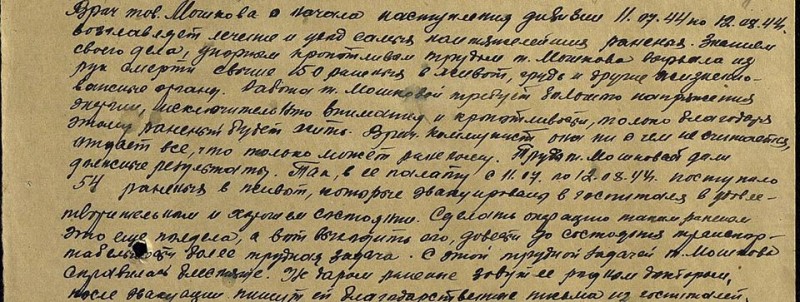 Врач тов. Мошкова с начала наступления дивизии 11.07.44 по 12.08.44.
возглавляет лечение и уход самых наитяжелейших раненых. Знанием
своего дела, упорным кропотливым трудом т. Мошкова вырвала из
рук смерти свыше 150 раненых в живот, грудь и другие жизненно-
важные органы. Работа т. Мошковой требует большого напряжения
энергии, исключительного внимания и кропотливости, только благодаря
этому раненый будет жить. Врач коммунист она ни с чем не считается,
отдает все, что только может раненому. Труды т. Мошковой дали
должные результаты. Так, в ее палату с 11.07. по 12.08.44. поступило
54 раненых в живот, которые эвакуированы в госпиталя в удовле-
творительном и хорошем состоянии. Сделать операцию таким раненым
это еще полдела, а вот выходить его, довести до состояния транспор-
табельности более трудная задача. С этой трудной задачей т. Мошкова
справилась блестяще. Не даром раненые зовут ее родным доктором,
после эвакуации пишут ей благодарственные письма из госпиталей,